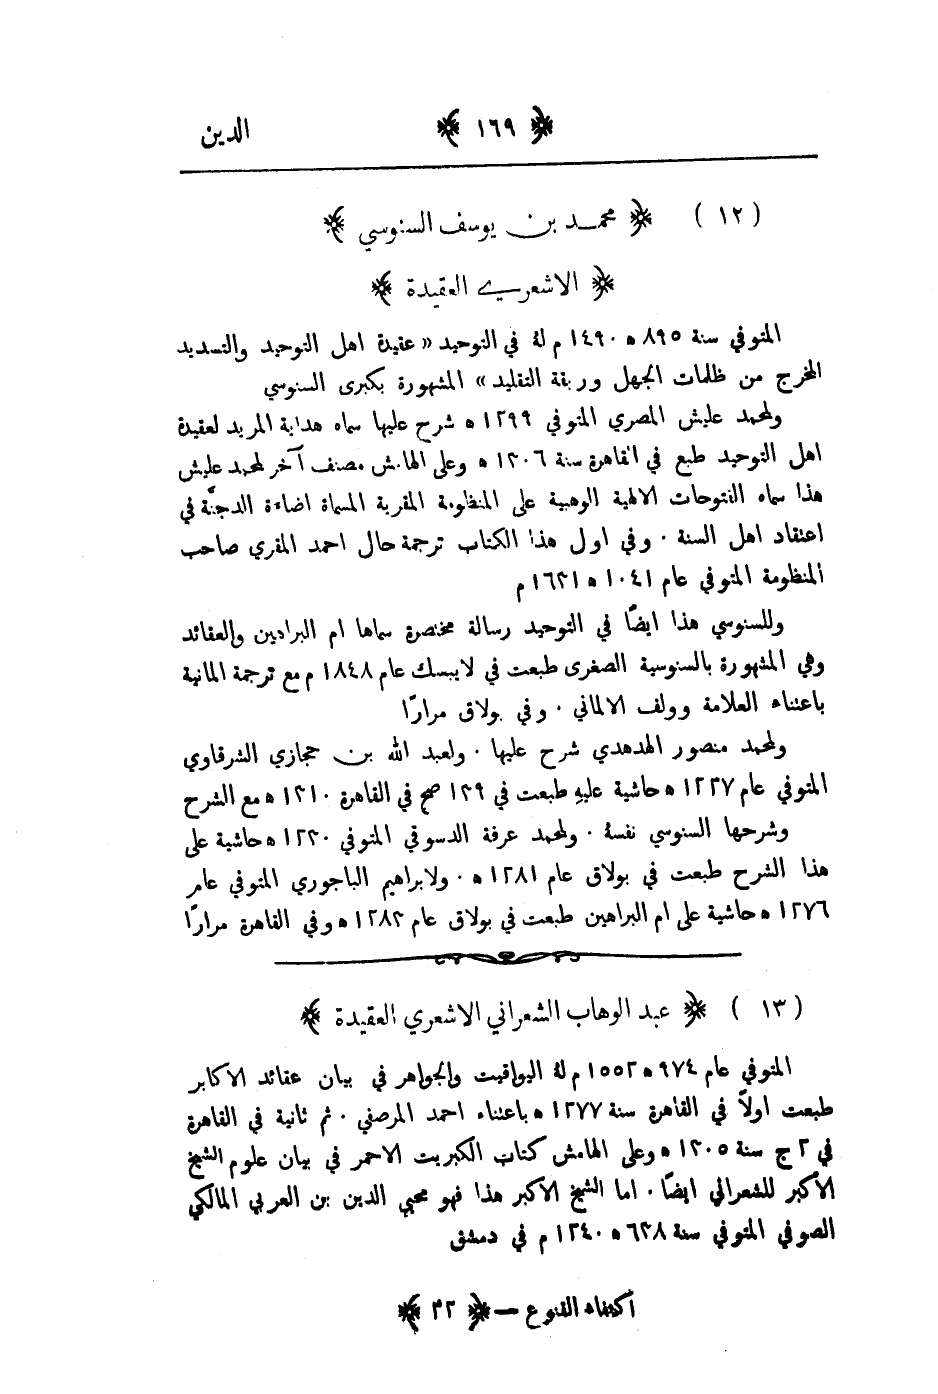 ﴿ ١٦٩ ﴾ الدين
( ١٢ ) ﴿ محمد بن يوسف السنوسي ﴾
﴿ الاشعري العقيدة ﴾
المتوفي سنة ٨٩٥ ه ١٤٩٠ م لهُ في التوحيد « عقيدة اهل التوحيد والتسديد
المخرج من ظلمات الجهل وربقة التقليد » المشهورة بكبرى السنوسي
ولمحمد عليش المصري المتوفي ١٢٩٩ ه شرح عليها سماه هداية المريد لعقيدة
اهل التوحيد طبع في القاهرة سنة ١٣٠٦ ه وعلى الهامش مصنف آخر لمحمد عليش
هذا سماه الفتوحات الالهية الوهبية على المنظومة المقرية المسماة اضاءة الدجنَّة في
اعتقاد اهل السنة ٠ وفي اول هذا الكتاب ترجمة حال احمد المقري صاحب
المنظومة المتوفي عام ١٠٤١ ه ١٦٣١ م
وللسنوسي هذا ايضًا في التوحيد رسالة مختصرة سماها ام البراهين والعقائد
وهي المشهورة بالسنوسية الصغرى طبعت في لايبسك عام ١٨٤٨ م مع ترجمة المانية
باعتناء العلامة وولف الالماني ٠ وفي بولاق مرارًا
ولمحمد منصور الهدهدي شرح عليها ٠ ولعبد الله بن حجازي الشرقاوي
المتوفي عام ١٢٢٧ ه حاشية عليهِ طبعت في ١٢٩ صح في القاهرة ١٣١٠ ه مع الشرح
وشرحها السنوسي نفسهُ ٠ ولمحمد عرفة الدسوقي المتوفي ١٢٣٠ ه حاشية على
هذا الشرح طبعت في بولاق عام ١٢٨١ ه ٠ ولابراهيم الباجوري المتوفي عام
١٢٧٦ ه حاشية على ام البراهين طبعت في بولاق عام ١٢٨٣ ه وفي القاهرة مرارًا
( ١٣ ) ﴿ عبد الوهاب الشعراني الاشعري العقيدة ﴾
المتوفي عام ٩٧٤ ه ١٥٥٣ م لهُ اليواقيت والجواهر في بيان عقائد الاكابر
طبعت اولاً في القاهرة سنة ١٢٧٧ ه باعتناء احمد المرصفي ٠ ثم ثانية في القاهرة
في ٢ ج سنة ١٣٠٥ ه وعلى الهامش كتاب الكبريت الاحمر في بيان علوم الشيخ
الاكبر للشعراني ايضًا ٠ اما الشيخ الاكبر هذا فهو محيي الدين بن العربي المالكي
الصوفي المتوفي سنة ٦٣٨ ه ١٢٤٠ م في دمشق
اكتفاء القنوع — ﴿ ٢٢ ﴾